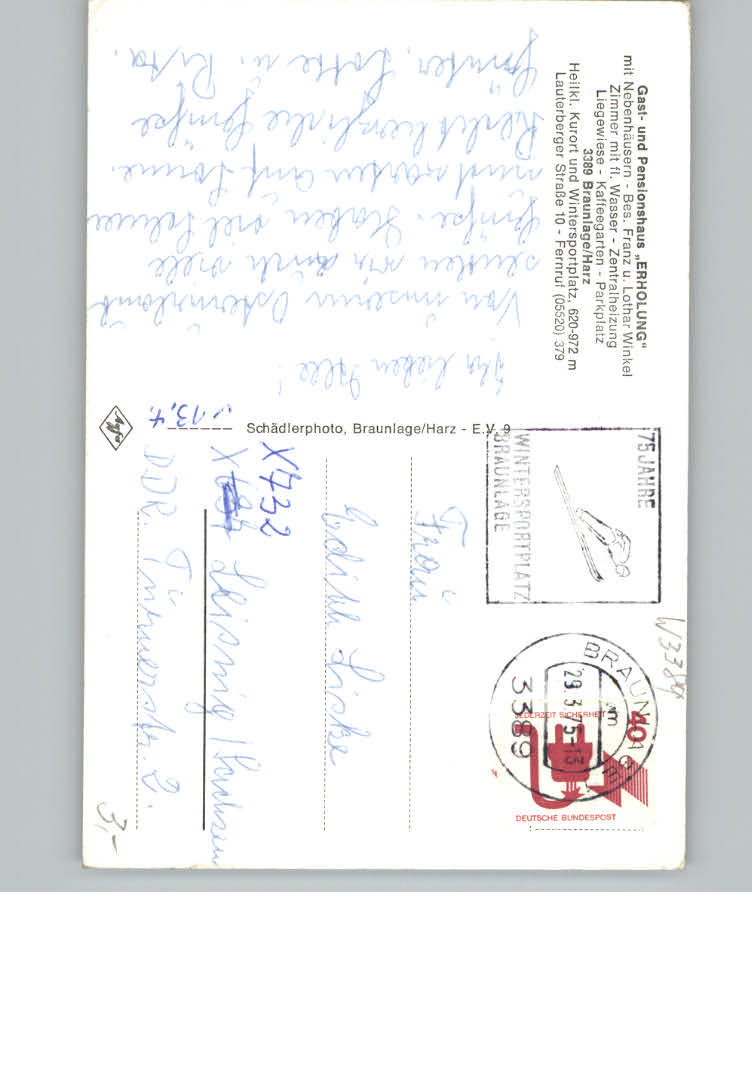 Gast- und Pensionshaus „ERHOLUNG“
mit Nebenhäusern - Bes. Franz u. Lothar Winkel
Zimmer mit fl. Wasser - Zentralheizung
Liegewiese - Kaffeegarten - Parkplatz
3389 Braunlage/Harz
Heilkl. Kurort und Wintersportplatz, 620-972 m
Lauterberger Straße 10 - Fernruf (05520) 379
Ihr lieben Alle!
Von unserm Osterurlaub
senden wir Euch viele
Grüße. Haben viel Schnee
und warten auf Sonne.
Recht herzliche Grüße
Günter, Lotte u. Rita.
Schädlerphoto, Braunlage/Harz - E.V. 9
v 13,4.
Agfa
75 JAHRE
WINTERSPORTPLATZ
BRAUNLAGE
BRAUNLAGE
29.3.75-13
3389
40
JEDERZEIT SICHERHEIT
DEUTSCHE BUNDESPOST
W3389
Frau
Edith Licke
X732
Leisnig / Sachsen
DDR.
3,-